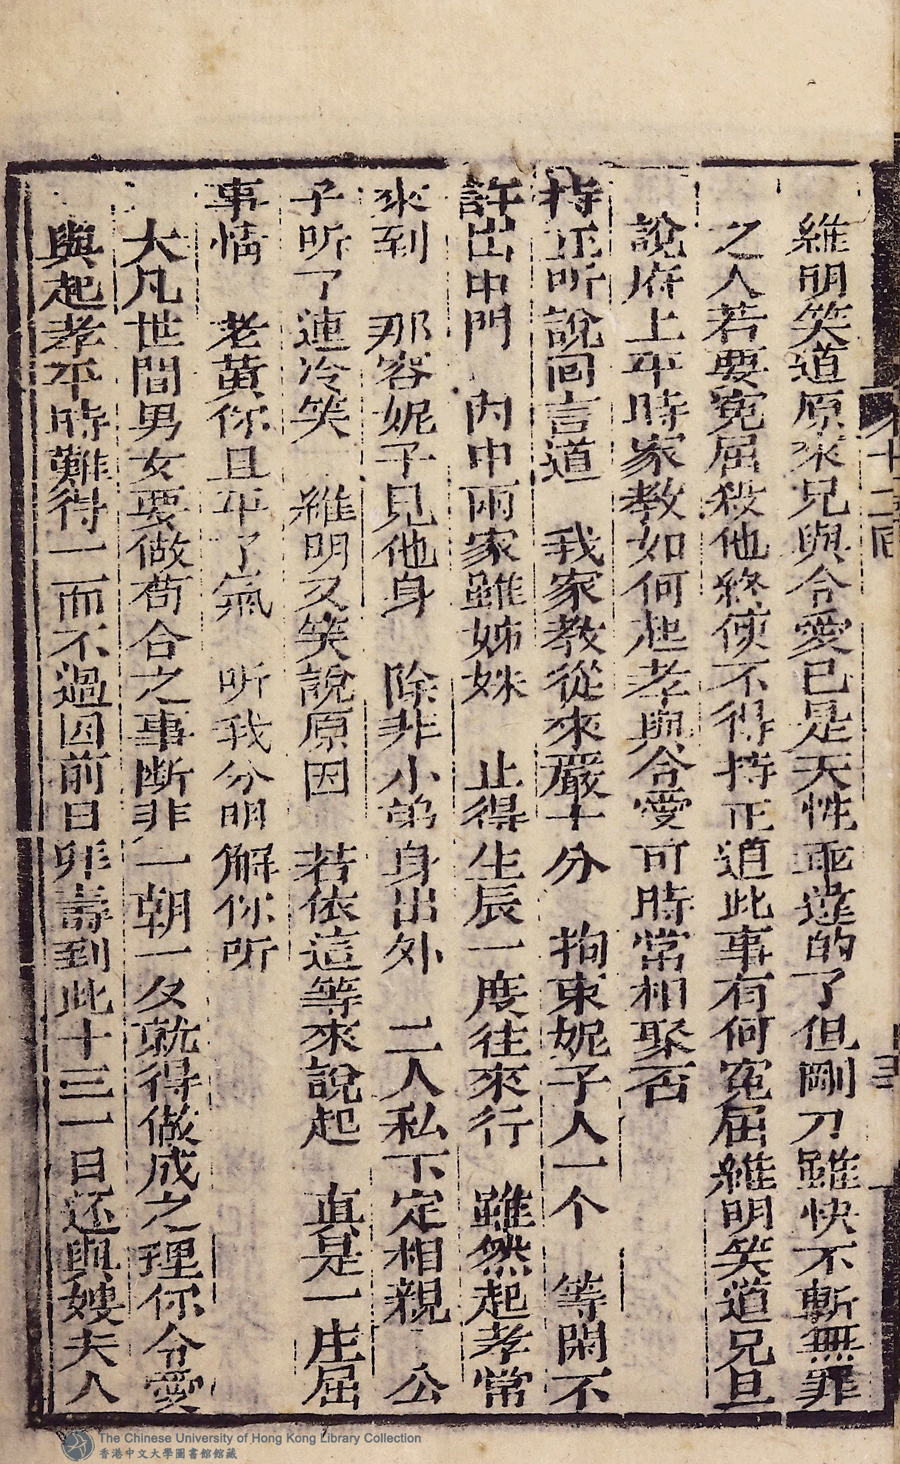 十二回
維明笑道原來兄與令愛已是天性乖違的了但剛刀雖快不斬無罪
之人若要寃屈殺他終使不得持正道此事有何寃屈維明笑道兄且
說府上平時家教如何起孝與令愛可時常相聚否
持正听說回言道 我家教從來嚴十分 拘束妮子人一个 等閑不
許出中門 內中兩家雖姊妹 止得生辰一度往來行 雖然起孝常
來到 那容妮子見他身 除非小弟身出外 二人私下定相親 公
子听了連冷笑 維明又笑說原因 若依這等來說起 真是一庄屈
事情 老黃你且平了氣 听我分明解你听
大凡世間男女要做苟合之事断非一朝一夕就得做成之理你令愛
與起孝平時難得一面不過因前日拜壽到此十三一日还與嫂夫人
The Chinese University of Hong Kong Library Collection
香港中文大學圖書館館藏